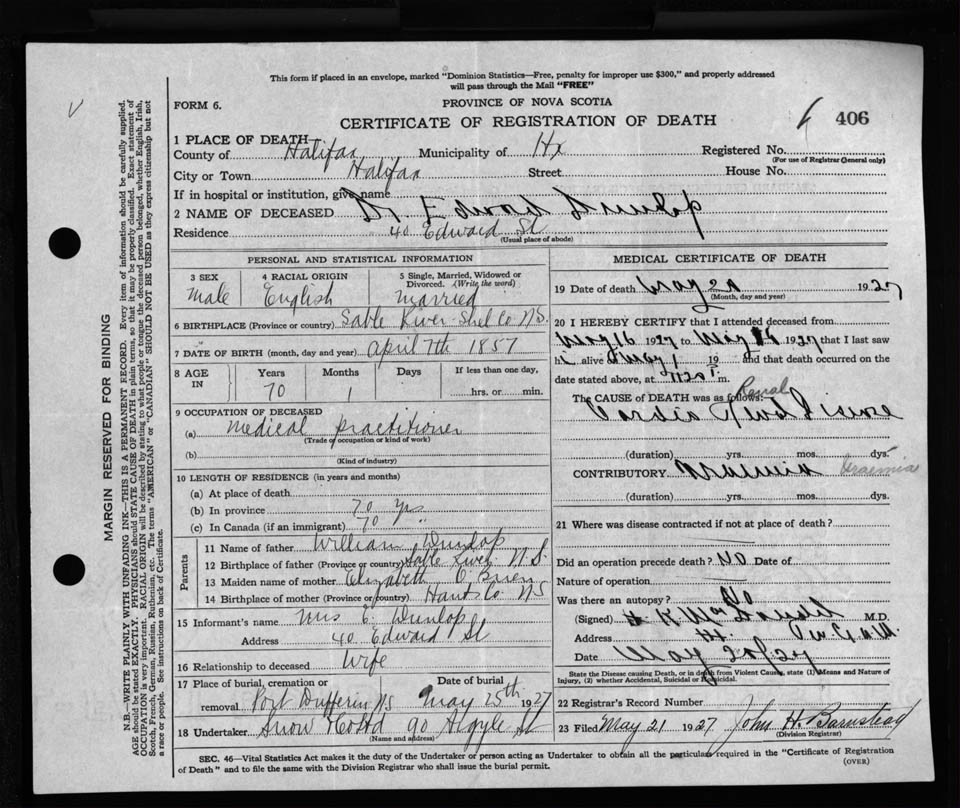 This form if placed in an envelope, marked "Dominion Statistics—Free, penalty for improper use $300," and properly addressed
will pass through the Mail "FREE"
FORM 6.
PROVINCE OF NOVA SCOTIA
CERTIFICATE OF REGISTRATION OF DEATH
406
MARGIN RESERVED FOR BINDING
N.B.—WRITE PLAINLY WITH UNFADING INK—THIS IS A PERMANENT RECORD. Every item of information should be carefully supplied.
AGE should be stated EXACTLY. PHYSICIANS should STATE CAUSE OF DEATH in plain terms, so that it may be properly classified. Exact statement of
OCCUPATION is very important. RACIAL ORIGIN will be described by stating to what people or tongue the deceased person belonged, whether English, Irish,
Scotch, French, German, Russian, Ruthenian, etc. The terms "AMERICAN" or "CANADIAN" SHOULD NOT BE USED as they express citizenship but not
a race or people. See instructions on back of Certificate.
1 PLACE OF DEATH
County of Halifax Municipality of Hx Registered No.
(For use of Registrar General only)
City or Town Halifax Street House No.
If in hospital or institution, give name
2 NAME OF DECEASED Dr. Edward Dunlop
Residence 40 Edward St
(Usual place of abode)
PERSONAL AND STATISTICAL INFORMATION
3 SEX 4 RACIAL ORIGIN 5 Single, Married, Widowed or
Divorced. (Write the word)
Male English Married
6 BIRTHPLACE (Province or country) Sable River Shel Co N.S.
7 DATE OF BIRTH (month, day and year) April 7th 1857
8 AGE IN Years Months Days If less than one day,
70 1 hrs. or min.
9 OCCUPATION OF DECEASED
(a) Medical practitioner
(Trade or occupation or kind of work)
(b)
(Kind of industry)
10 LENGTH OF RESIDENCE (in years and months)
(a) At place of death
(b) In province 70 yrs
(c) In Canada (if an immigrant) 70 "
Parents
11 Name of father William Dunlop
12 Birthplace of father (Province or country) Sable River N.S.
13 Maiden name of mother Elizabeth
14 Birthplace of mother (Province or country) Hants Co. NS
15 Informant's name Mrs E. Dunlop
Address 40 Edward St
16 Relationship to deceased Wife
17 Place of burial, cremation or Date of burial
removal Port Dufferin NS May 25th 1927
18 Undertaker Snow 90 Argyle St
(Name and address)
MEDICAL CERTIFICATE OF DEATH
19 Date of death May 20 1927
(Month, day and year)
20 I HEREBY CERTIFY that I attended deceased from
May 16 1927 to May 1927 that I last saw
h alive on May 19 and that death occurred on
date stated above, at m.
The CAUSE of DEATH was as follows: Renal
Cardio
(duration) yrs. mos. dys.
CONTRIBUTORY Uraemia Uraemia
(duration) yrs. mos. dys.
21 Where was disease contracted if not at place of death?
Did an operation precede death? NO Date of
Nature of operation
Was there an autopsy? No
(Signed) M.D.
Address
Date May 20/27
State the Disease causing Death, or in death from Violent Causes, state (1) Means and Nature of
Injury, (2) whether Accidental, Suicidal or Homicidal.
22 Registrar's Record Number
23 Filed May 21 1927 John H. Barnstead
(Division Registrar)
SEC. 46—Vital Statistics Act makes it the duty of the Undertaker or person acting as Undertaker to obtain all the particulars required in the "Certificate of Registration
of Death" and to file the same with the Division Registrar who shall issue the burial permit.
(OVER)